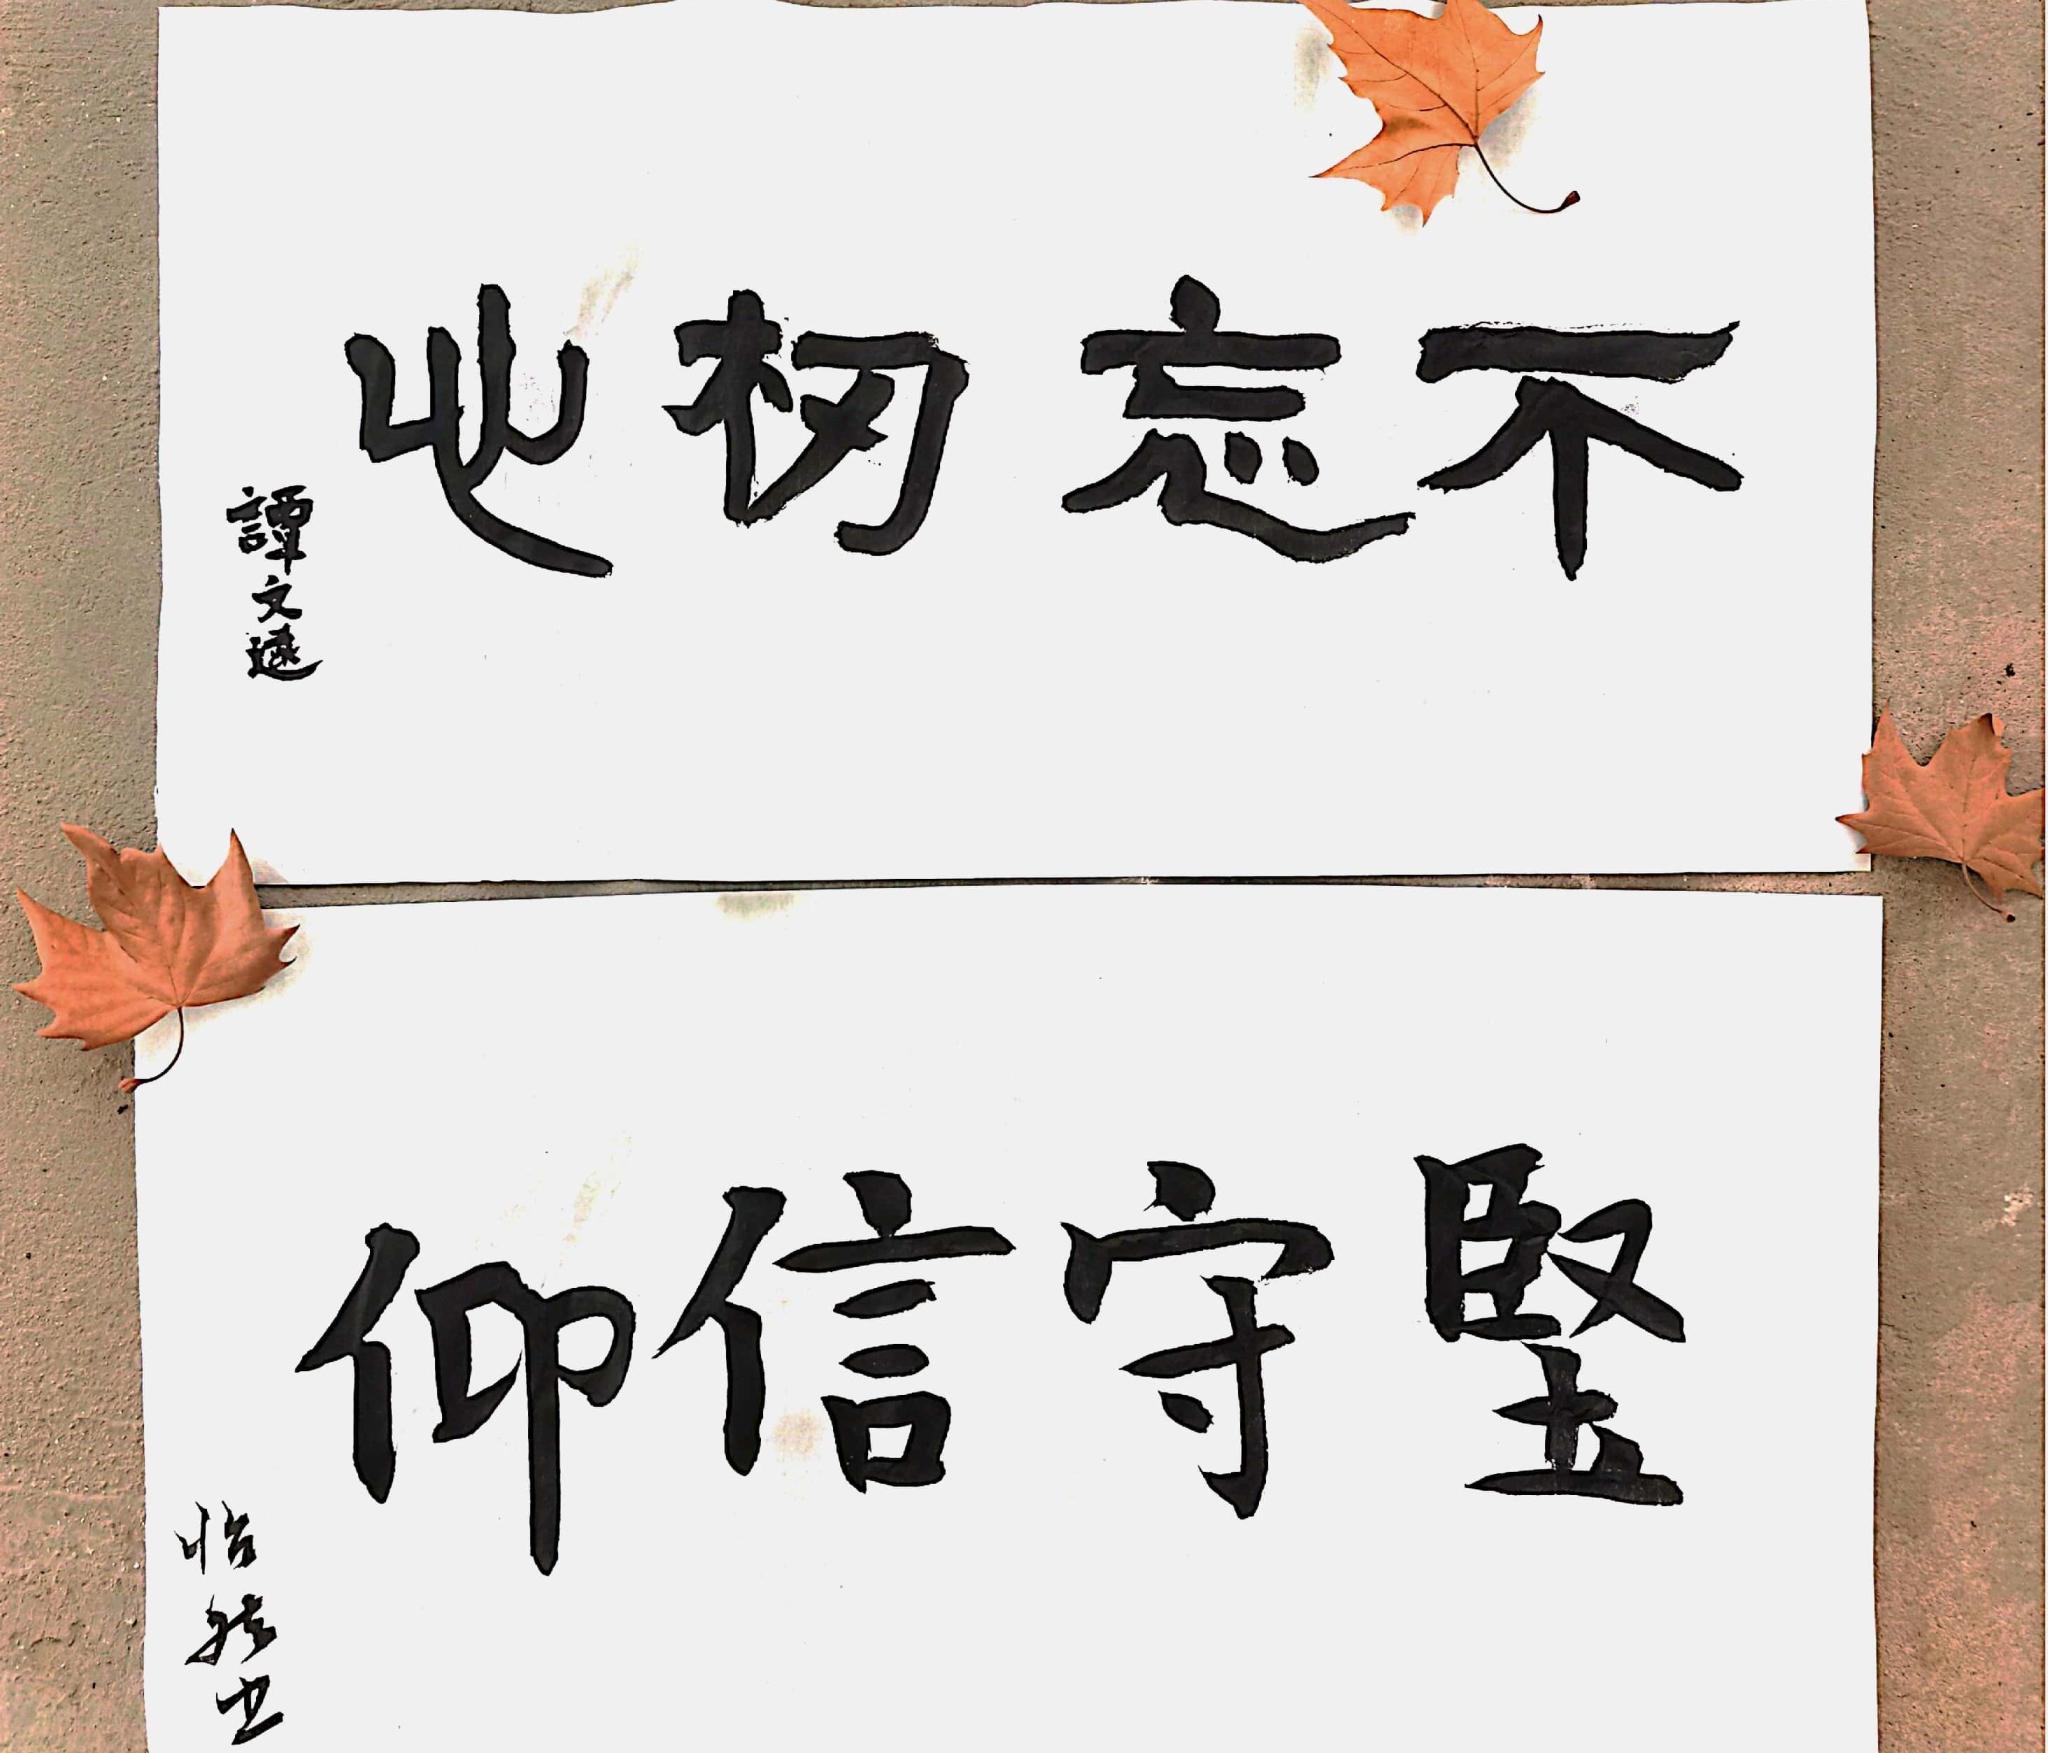 不忘初心
譚文遠
堅守信仰
怡然